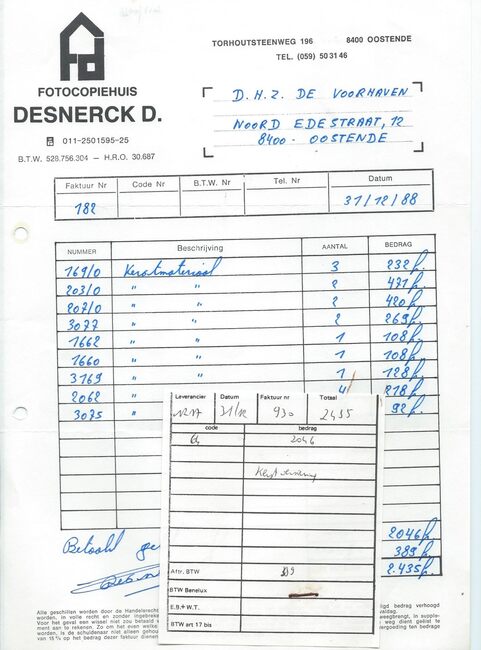 TORHOUTSTEENWEG 196 8400 OOSTENDE
TEL. (059) 50 31 46
FOTOCOPIEHUIS
DESNERCK D.
011-2501595-25
B.T.W. 528.756.304 – H.R.O. 30.687
D.H.Z. DE VOORHAVEN
NOORD EDESTRAAT, 12
8400 - OOSTENDE
Faktuur Nr Code Nr B.T.W. Nr Tel. Nr Datum
182 31/12/88
NUMMER Beschrijving AANTAL BEDRAG
169/0 Kerstmateriaal 3 232 f.
203/0 " " 2 471 f.
207/0 " " 2 420 f.
3077 " " 2 269 f.
1662 " " 1 108 f.
1660 " " 1 108 f.
3169 " " 1 128 f.
2062 " 4 218 f.
3075 " 92 f.
Leverancier Datum Faktuur nr Totaal
31/12 930 2435
code bedrag
64 2046
Kerstversiering
Aftr. BTW 389
BTW Benelux
E.B. + W.T.
BTW art 17 bis
2046 f.
389 f.
2.435 f.
Betaald
Alle geschillen worden door de Handelsrecht
worden, in volle recht en zonder ingebreke
Voor het geval een wissel niet zou betaald
ment aan te rekenen. Zo om het even welke
worden, is de schuldenaar niet alleen gehou
van 15 % op het bedrag dezer faktuur dienst
ligd bedrag verhoogd
valdag.
weegbrengt, in supple-
wet geen dienst gekist te
vergoeding ten bedrage